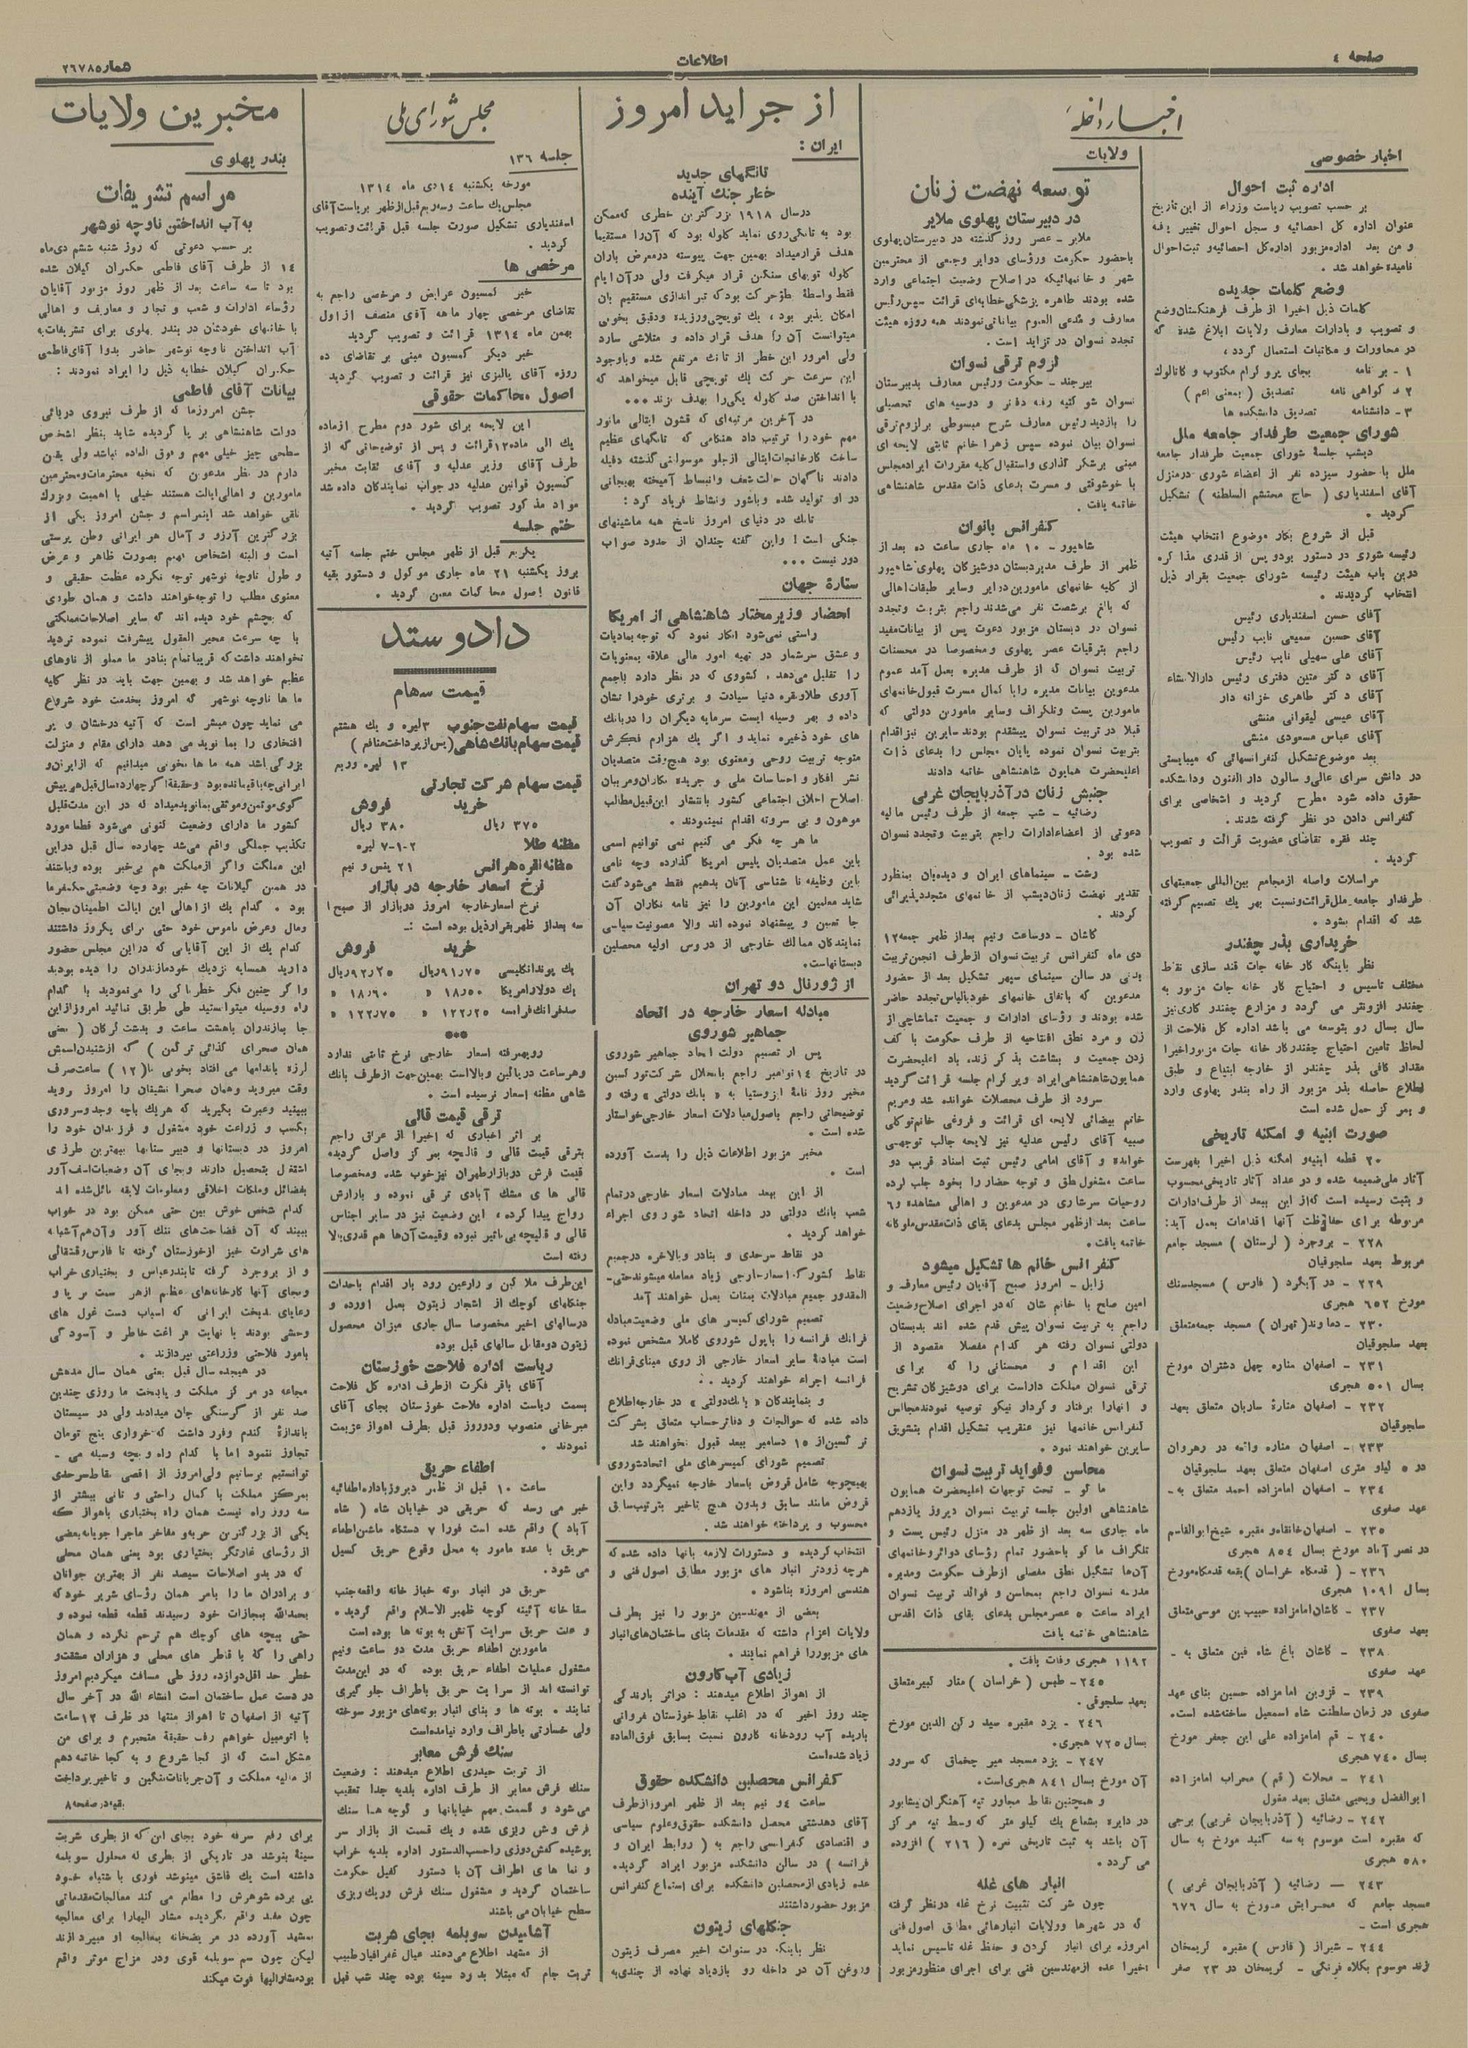 صفحه ٤
اطلاعات
شماره ٢٦٧٨٥
اخبار داخله
اخبار خصوصی
اداره ثبت احوال
بر حسب تصویب ریاست وزراء از این تاریخ
عنوان اداره کل احصائیه و سجل احوال تغییر یافته
و من بعد اداره مزبور اداره کل احصائیه و ثبت احوال
نامیده خواهد شد .
وضع کلمات جدیده
کلمات ذیل اخیرا از طرف فرهنگستان وضع
و تصویب و بادارات معارف ولایات ابلاغ شده که
در محاورات و مکاتبات استعمال گردد :
١ - بر نامه بجای پرو گرام مکتوب و کاتالوك
٢ - گواهی نامه تصدیق ( بمعنی اعم )
٣ - دانشنامه تصدیق دانشکده ها
شورای جمعیت طرفدار جامعه ملل
دیشب جلسه شورای جمعیت طرفدار جامعه
ملل با حضور سیزده نفر از اعضاء شوری در منزل
آقای اسفندیاری ( حاج محتشم السلطنه ) تشکیل
گردید .
قبل از شروع بکار موضوع انتخاب هیئت
رئیسه شوری در دستور بود و پس از قدری مذاکره
در این باب هیئت رئیسه شورای جمعیت بقرار ذیل
انتخاب گردیدند .
آقای حسن اسفندیاری رئیس
آقای حسین سمیعی نایب رئیس
آقای علی سهیلی نایب رئیس
آقای دکتر متین دفتری رئیس دارالانشاء
آقای دکتر طاهری خزانه دار
آقای عیسی لیقوانی منشی
آقای عباس مسعودی منشی
بعد موضوع تشکیل کنفرانسهائی که میبایستی
در دانش سرای عالی و سالون دار الفنون و دانشکده
حقوق داده شود مطرح گردید و اشخاصی برای
کنفرانس دادن در نظر گرفته شدند .
چند فقره تقاضای عضویت قرائت و تصویب
گردید .
مراسلات واصله از مجامع بین المللی جمعیتهای
طرفدار جامعه ملل قرائت و نسبت بهر یك تصمیم گرفته
شد که اقدام بشود .
خریداری بذر چغندر
نظر باینکه کار خانه جات قند سازی نقاط
مختلف تاسیس و احتیاج کار خانه جات مزبور به
چغندر افزونتر می گردد و مزارع چغندر کاری نیز
سال بسال رو بتوسعه می باشد اداره کل فلاحت از
لحاظ تامین احتیاج چغندر کار خانه جات مزبور اخیرا
مقدار کافی بذر چغندر از خارجه ابتیاع و طبق
اطلاع حاصله بذر مزبور از راه بندر پهلوی وارد
و بمر کز حمل شده است
صورت ابنیه و امکنه تاریخی
٢٠ قطعه ابنیه و امکنه ذیل اخیرا بفهرست
آثار ملی ضمیمه شده و در عداد آثار تاریخی محسوب
و بثبت رسیده است که از این ببعد از طرف ادارات
مربوطه برای حفاظت آنها اقدامات بعمل آید :
٢٢٨ - بروجرد ( لرستان ) مسجد جامع
مربوط بعهد سلجوقیان
٢٢٩ - در ابگرد ( فارس ) مسجد سنك
مورخ ٦٥٢ هجری
٢٣٠ - دماوند ( تهران ) مسجد جمعه متعلق
بعهد سلجوقیان
٢٣١ - اصفهان مناره چهل دشتران مورخ
بسال ٥٠١ هجری
٢٣٢ - اصفهان مناره ساربان متعلق بعهد
سلجوقیان
٢٣٣ - اصفهان مناره واقعه در رهروان
در ٥ کیلو متری اصفهان متعلق بعهد سلجوقیان
٢٣٤ - اصفهان امامزاده احمد متعلق به -
عهد صفوی
٢٣٥ - اصفهان خانقاه و مقبره شیخ ابوالقاسم
در نصر آباد مورخ بسال ٨٥٤ هجری
٢٣٦ - ( قدمگاه خراسان ) بقعه قدمگاه مورخ
بسال ١٠٩١ هجری
٢٣٧ - کاشان امامزاده حبیب بن موسی متعلق
بعهد صفوی
٢٣٨ - کاشان باغ شاه فین متعلق به -
عهد صفوی
٢٣٩ - قزوین امامزاده حسین بنای عهد
صفوی در زمان سلطنت شاه اسمعیل ساخته شده است .
٢٤٠ - قم امامزاده علی ابن جعفر مورخ
بسال ٧٤٠ هجری
٢٤١ - محلات ( قم ) محراب امامزاده
ابوالفضل و یحیی متعلق بعهد مغول
٢٤٢ - رضائیه ( آذربایجان غربی ) برجی
که مقبره است موسوم به سه گنبد مورخ به سال
٥٨٠ هجری
٢٤٣ — رضائیه ( آذربایجان غربی )
مسجد جامع که محرابش مورخ به سال ٦٧٦
هجری است -
٢٤٤ - شیراز ( فارس ) مقبره کریمخان
زند موسوم بکلاه فرنگی - کریمخان در ٢٣ صفر
ولایات
توسعه نهضت زنان
در دبیرستان پهلوی ملایر
ملایر - عصر روز گذشته در دبیرستان پهلوی
باحضور حکومت و رؤسای دوایر و جمعی از محترمین
شهر و خانمهائیکه در اصلاح وضعیت اجتماعی وارد
شده بودند طاهره پزشکی خطابه ای قرائت سپس رئیس
معارف و مدعی العموم بیاناتی نمودند همه روزه هیئت
تجدد نسوان در تزاید است .
لزوم ترقی نسوان
بیرجند - حکومت و رئیس معارف بدبیرستان
نسوان شوکتیه رفته دفاتر و دوسیه های تحصیلی
را بازدید رئیس معارف شرح مبسوطی برلزوم ترقی
نسوان بیان نموده سپس زهرا خانم تابتی لایحه ای
مبنی برشکر گذاری و استقبال کلیه مقررات ایراد مجلس
با خوشوقتی و مسرت بدعای ذات مقدس شاهنشاهی
خاتمه یافت .
کنفرانس بانوان
شاهپور - ١٠ ماه جاری ساعت ده بعد از
ظهر از طرف مدیر دبستان دوشیزگان پهلوی شاهپور
از کلیه خانمهای مامورین دوایر وسایر طبقات اهالی
که بالغ برشصت نفر می شدند راجع بتربیت و تجدد
نسوان در دبستان مزبور دعوت پس از بیانات مفید
راجع بترقیات عصر پهلوی و مخصوصا در محسنات
تربیت نسوان که از طرف مدیره بعمل آمد عموم
مدعوین بیانات مدیره را با کمال مسرت قبول خانمهای
مامورین پست و تلگراف وسایر مامورین دولتی که
قبلا در تربیت نسوان پیشقدم بودند سایرین نیز اقدام
بتربیت نسوان نموده پایان مجلس را بدعای ذات
اعلیحضرت همایون شاهنشاهی خاتمه دادند
جنبش زنان در آذربایجان غربی
رضائیه - شب جمعه از طرف رئیس مالیه
دعوتی از اعضاء ادارات راجع بتربیت و تجدد نسوان
شده بود .
رشت - سینماهای ایران و دیده بان بمنظور
تقدیر نهضت زنان دیشب از خانمهای متجدد پذیرائی
کردند .
کاشان - دوساعت ونیم بعد از ظهر جمعه ١٢
دی ماه کنفرانس تربیت نسوان از طرف انجمن تربیت
بدنی در سالن سینمای سپهر تشکیل بعد از حضور
مدعوین که باتفاق خانمهای خود بالباس تجدد حاضر
شده بودند و رؤسای ادارات و جمعیت تماشاچی از
زن و مرد نطق افتتاحیه از طرف حکومت با کف
زدن جمعیت و بشاشت بذکر زنده باد اعلیحضرت
همایون شاهنشاهی ایراد و پرگرام جلسه قرائت گردید
سرود از طرف محصلات خوانده شد و مریم
خانم بیضائی لایحه ای قرائت و فروغی خانم توکلی
صبیه آقای رئیس عدلیه نیز لایحه جالب توجهی
خوانده و آقای امامی رئیس ثبت اسناد قریب دو
ساعت مشغول نطق و توجه حضار را بخود جلب کرده
روحیات سرشاری در مدعوین و اهالی مشاهده و ٦
ساعت بعد از ظهر مجلس بدعای بقای ذات مقدس ملوکانه
خاتمه یافت .
کنفرانس خانم ها تشکیل میشود
زابل - امروز صبح آقایان رئیس معارف و
امین صلح با خانم شان که در اجرای اصلاح وضعیت
راجع به تربیت نسوان پیش قدم شده اند بدبستان
دولتی نسوان رفته هر کدام مفصلا مقصود از
این اقدام و محسناتی را که برای
ترقی نسوان مملکت داراست برای دوشیزگان تشریح
و انهارا برفتار و کردار نیکو توصیه نمودند مجالس
کنفرانس خانمها نیز عنقریب تشکیل اقدام بتشویق
سایرین خواهند نمود .
محاسن وفواید تربیت نسوان
ماکو - تحت توجهات اعلیحضرت همایون
شاهنشاهی اولین جلسه تربیت نسوان دیروز یازدهم
ماه جاری سه بعد از ظهر در منزل رئیس پست و
تلگراف ماکو باحضور تمام رؤسای دوائر و خانمهای
آن ها تشکیل نطق مفصلی از طرف حکومت و مدیره
مدرسه نسوان راجع بمحاسن و فوائد تربیت نسوان
ایراد ساعت ٥ عصر مجلس بدعای بقای ذات اقدس
شاهنشاهی خاتمه یافت
١١٩٣ هجری وفات یافت .
٢٤٥ - طبس ( خراسان ) منار کبیر متعلق
بعهد سلجوقی .
٢٤٦ - یزد مقبره سید رکن الدین مورخ
بسال ٧٢٥ هجری .
٢٤٧ - یزد مسجد میر چخماق که سردر
آن مورخ بسال ٨٤١ هجری است .
و همچنین نقاط مجاور تپه آهنگران نیشابور
در دایره بشعاع یك کیلو متر که وسط تپه مرکز
آن باشد به ثبت تاریخی نمره ( ٢١٦ ) افزوده
می گردد .
انبار های غله
چون شرکت تثبیت نرخ غله در نظر گرفته
که در شهرها و ولایات انبارهائی مطابق اصول فنی
امروزه برای انبار کردن و حفظ غله تاسیس نماید
اخیرا عده از مهندسین فنی برای اجرای منظور مزبور
از جراید امروز
ایران :
تانگهای جدید
خطر جنك آینده
در سال ١٩١٨ بزرگترین خطری که ممکن
بود به تانکی روی نماید گلوله بود که آن را مستقیما
هدف قرار میداد بهمین جهت پیوسته در معرض باران
گلوله توپهای سنگین قرار میگرفت ولی در آن ایام
فقط واسطه بطؤ حرکت بود که تیر اندازی مستقیم بان
امکان پذیر بود ، یك توپچی ورزیده و دقیق بخوبی
میتوانست آن را هدف قرار داده و متلاشی سازد
ولی امروز این خطر از تانك مرتفع شده و باوجود
این سرعت حرکت یك توپچی قابل میخواهد که
با انداختن صد گلوله یکی را بهدف بزند ...
در آخرین مرتبه ای که قشون ایتالی مانور
مهم خود را ترتیب داد هنکامی که تانگهای عظیم
ساخت کارخانجات ایتالی از جلو موسولینی گذشته دفیله
دادند ناگهان حالت شعف و انبساط آمیخته بهیجانی
در او تولید شده و باشور و نشاط فریاد کرد :
تانك در دنیای امروز ناسخ همه ماشینهای
جنگی است ! و این گفته چندان از حدود صواب
دور نیست ...
ستارۀ جهان
احضار وزیر مختار شاهنشاهی از امریکا
راستی نمی شود انکار نمود که توجه بمادیات
و عشق سرشمار در تهیه امور مالی علاقه بمعنویات
را تقلیل می دهد . کشوری که در نظر دارد باجمع
آوری طلاء نقره دنیا سیادت و برتری خود را نشان
داده و بهر وسیله ایست سرمایه دیگران را در بانك
های خود ذخیره نماید و اگر یك هزارم فکرش
متوجه تربیت روحی و معنوی بود هیچوقت متصدیان
نشر افکار و احساسات ملی و جریده نگاران و مربیان
اصلاح اخلاق اجتماعی کشور بانتشار این قبیل مطالب
موهون و بی سروته اقدام نمینمودند .
ما هر چه فکر می کنیم نمی توانیم اسمی
باین عمل متصدیان پلیس امریکا گذارده وچه نامی
باین وظیفه نا شناسی آنان بدهیم فقط می شود گفت
شاید معلمین این مامورین را نیز نامه نگاران آن
جا تعیین و پیشنهاد نموده اند والا مصونیت سیاسی
نمایندگان ممالك خارجی از دروس اولیه محصلین
دبستانهاست .
از ژورنال دو تهران
مبادله اسعار خارجه در اتحاد
جماهیر شوروی
پس از تصمیم دولت اتحاد جماهیر شوروی
در تاریخ ١٤ نوامبر راجع بانحلال شرکت تورگسین
مخبر روز نامه ازوستیا به « بانك دولتی » رفته و
توضیحاتی راجع باصول مبادلات اسعار خارجی خواستار
شده است .
مخبر مزبور اطلاعات ذیل را بدست آورده
است .
از این ببعد مبادلات اسعار خارجی در تمام
شعب بانك دولتی در داخله اتحاد شوروی اجراء
خواهد گردید .
در نقاط سرحدی و بنادر و بالاخره در جمیع
نقاط کشور که اسعار خارجی زیاد معامله میشوند حتی -
المقدور جمیع مبادلات بمنات بعمل خواهند آمد
تصمیم شورای کمیسر های ملی وضعیت مبادله
فرانك فرانسه را باپول شوروی کاملا مشخص نموده
است مبادلهٔ سایر اسعار خارجی از روی مبنای فرانك
فرانسه اجراء خواهند گردید . :
و بنمایندگان « بانك دولتی » در خارجه اطلاع
داده شده که حوالجات و دفاتر حساب متعلق بشرکت
تورگسین از ١٥ دسامبر ببعد قبول نخواهند شد
تصمیم شورای کمیسرهای ملی اتحاد شوروی
بهیچوجه شامل قروض باسعار خارجه نمیگردد و این
قروض مانند سابق و بدون هیچ تاخیر بترتیب سابق
محسوب و پرداخته خواهند شد .
انتخاب گردیده و دستورات لازمه بانها داده شده که
هرچه زودتر انبار های مزبور مطابق اصول فنی و
هندسی امروزه بناشود .
بعضی از مهندسین مزبور را نیز بطرف
ولایات اعزام داشته که مقدمات بنای ساختمان های انبار
های مزبور را فراهم نمایند .
زیادی آب کارون
از اهواز اطلاع میدهند : دراثر بارندگی
چند روز اخیر که در اغلب نقاط خوزستان فروانی
باریده آب رودخانه کارون نسبت بسابق فوق العاده
زیاد شده است
کنفرانس محصلین دانشکده حقوق
ساعت ٤ و نیم بعد از ظهر امروز از طرف
آقای دهدشتی محصل دانشکده حقوق و علوم سیاسی
و اقتصادی کنفرانسی راجع به ( روابط ایران و
فرانسه ) در سالن دانشکده مزبور ایراد گردید.
عده زیادی از محصلین دانشکده برای استماع کنفرانس
مزبور حضور داشتند
جنگلهای زیتون
نظر باینکه در سنوات اخیر مصرف زیتون
وروغن آن در داخله رو بازدیاد نهاده از چندی به
مجلس شورای ملی
جلسه ١٣٦
مورخه یکشنبه ١٤ دی ماه ١٣١٤
مجلس یك ساعت و سه ربع قبل از ظهر بریاست آقای
اسفندیاری تشکیل صورت جلسه قبل قرائت و تصویب
گردید .
مرخصی ها
خبر کمسیون عرایض و مرخصی راجع به
تقاضای مرخصی چهار ماهه آقای منصف از اول
بهمن ماه ١٣١٤ قرائت و تصویب گردید
خبر دیگر کمسیون مبنی بر تقاضای ده
روزه آقای پالیزی نیز قرائت و تصویب گردید
اصول محاکمات حقوقی
این لایحه برای شور دوم مطرح از ماده
یك الی ماده ١٢ قرائت و پس از توضیحاتی که از
طرف آقای وزیر عدلیه و آقای نقابت مخبر
کمسیون قوانین عدلیه در جواب نمایندگان داده شد
مواد مذکور تصویب گردید .
ختم جلسه
یکربع قبل از ظهر مجلس ختم جلسه آتیه
بروز یکشنبه ٢١ ماه جاری موکول و دستور بقیه
قانون اصول محاکمات معین گردید .
داد و ستد
قیمت سهام
قیمت سهام نفت جنوب ٣ لیره و یك هشتم
قیمت سهام بانك شاهی ( پس از پرداخت منافع )
١٣ لیره و ربع
قیمت سهام شرکت تجارتی
خرید فروش
٣٧٥ ریال ٣٨٠ ریال
مظنه طلا ٧-١-٢ لیره
مظنه نقره هرانس ٢١ پنس و نیم
نرخ اسعار خارجه در بازار
نرخ اسعار خارجه امروز در بازار از صبح الی
سه بعد از ظهر بقرار ذیل بوده است :-
خرید فروش
یك پوند انگلیسی ٩١/٧٥ ریال ٩٢/٢٥ ریال
یك دولار امریکا ١٨/٥٠ « ١٨/٦٠ «
صد فرانك فرانسه ١٢٢/٢٥ « ١٢٢/٧٥ «
***
رویهمرفته اسعار خارجی نرخ ثابتی ندارد
و هر ساعت در پائین و بالا است بهمین جهت از طرف بانك
شاهی مظنه اسعار نرسیده است .
ترقی قیمت قالی
بر اثر اخباری که اخیرا از عراق راجع
بترقی قیمت قالی و قالیچه بمرکز واصل گردیده
قیمت فرش در بازار طهران نیز خوب شده و مخصوصا
قالی های مشك آبادی ترقی نموده و بازارش
رواج پیدا کرده ، این وضعیت نیز در سایر اجناس
قالی و قلیچه بی تاثیر نبوده و قیمت آن ها هم قدری بالا
رفته است
این طرف ملاکین و زارعین رود بار اقدام باحداث
جنکلهای کوچك از اشجار زیتون بعمل آورده و
در سالهای اخیر مخصوصا سال جاری میزان محصول
زیتون دو مقابل سالهای قبل بوده
ریاست اداره فلاحت خوزستان
آقای باقر فکرت از طرف اداره کل فلاحت
بسمت ریاست اداره فلاحت خوزستان بجای آقای
میرخانی منصوب و دو روز قبل بطرف اهواز عزیمت
نمودند .
اطفاء حریق
ساعت ١٠ قبل از ظهر دیروز باداره اطفائیه
خبر می رسد که حریقی در خیابان شاه ( شاه
آباد ) واقع شده است فورا ٧ دستگاه ماشین اطفاء
حریق با عده مامور به محل وقوع حریق گسیل
می شود .
حریق در انبار بوته خباز خانه واقعه جنب
سقا خانه آئینه کوچه ظهیر الاسلام واقع گردیده .
و علت حریق سرایت آتش به بوته ها بوده است
مامورین اطفاء حریق مدت دو ساعت ونیم
مشغول عملیات اطفاء حریق بوده که در این مدت
توانسته اند از سرایت حریق باطراف جلوگیری
نمایند . بوته ها و بنای انبار بوته های مزبور سوخته
ولی خسارتی باطراف وارد نیامده است
سنك فرش معابر
از تربت حیدری اطلاع میدهند : وضعیت
سنك فرش معابر از طرف اداره بلدیه جدا تعقیب
می شود و قسمت مهم خیابانها و کوچه ها سنك
فرش و ش ریزی شده و یك قسمت از بازار سر
پوشیده کفش دوزی را حسب الدستور اداره بلدیه خراب
و نما های اطراف آن با دستور کفیل حکومت
ساختمان گردید و مشغول سنك فرش وریك ریزی
سطح خیابان می باشند
آشامیدن سوبلمه بجای شربت
از مشهد اطلاع می دهند عیال غفرانیان طبیب
تربت جام که مبتلا بدرد سینه بوده چند شب قبل
مخبرین ولایات
بندر پهلوی
مراسم تشریفات
به آب انداختن ناوچه نوشهر
بر حسب دعوتی که روز شنبه ششم دی ماه
١٤ از طرف آقای فاطمی حکمران گیلان شده
بود تا سه ساعت بعد از ظهر روز مزبور آقایان
رؤساء ادارات و شعب و تجار و معاریف و اهالی
با خانمهای خودشان در بندر پهلوی برای تشریفات به
آب انداختن ناوچه نوشهر حاضر بدوا آقای فاطمی
حکمران گیلان خطابه ذیل را ایراد نمودند :
بیانات آقای فاطمی
جشن امروز ما که از طرف نیروی دریائی
دولت شاهنشاهی بر پا گردیده شاید بنظر اشخاص
سطحی چیز خیلی مهم و فوق العاده نباشد ولی یقین
دارم در نظر مدعوین که نخبه محترمات و محترمین
مامورین و اهالی ایالت هستند خیلی با اهمیت و بزرك
تلقی خواهد شد این مراسم و جشن امروز یکی از
بزرگترین آرزو و آمال هر ایرانی وطن پرستی
است و البته اشخاص فهیم بصورت ظاهر و عرض
و طول ناوچه نوشهر توجه نکرده عظمت حقیقی و
معنوی مطلب را توجه خواهند داشت و همان طوری
که بچشم خود دیده اند که سایر اصلاحات مملکتی
با چه سرعت محیر العقول پیشرفت نموده تردید
نخواهند داشت که قریبا تمام بنادر ما مملو از ناوهای
عظیم خواهد شد و بهمین جهت باید در نظر کلیه
ما ها ناوچه نوشهر که امروز بخدمت خود شروع
می نماید چون مبشر است که آتیه درخشان و پر
افتخاری را بما نوید می دهد دارای مقام و منزلت
بزرگی باشد همه ما ها بخوبی میدانیم که از ایران و
ایرانی چه باقیمانده بود و حقیقة اگر چهارده سال قبل هر پیش
گوی موتمن و موثقی بما نوید میداد که در این مدت قلیل
کشور ما دارای وضعیت کنونی می شود قطعا مورد
تکذیب جملگی واقع می شد چهارده سال قبل در این
این مملکت واگر از مملکت هم بی خبر بوده و باشند
در همین گیلانات چه خبر بود وچه وضعیتی حکمفرما
بود . کدام یك از اهالی این ایالت اطمینان بجان
ومال وعرض ناموس خود حتی برای یکروز داشتند
کدام یك از این آقایانی که در این مجلس حضور
دارید همسایه نزدیك خود مازندران را دیده بودید
واگر چنین فکر خطرناکی را می نمودید با کدام
راه و وسیله میتوانستید طی طریق نمائید امروز از این
جا بمازندران باهشت ساعت و بدشت گرگان ( یعنی
همان صحرای کذائی ترکمن ) که از شنیدن اسمش
لرزه باندامها می افتاد بخوبی با ( ١٢ ) ساعت صرف
وقت میروید وهمان صحرا نشینان را امروز روید
ببینید و عبرت بگیرید که هریك باچه وجد و سروری
بکسب و زراعت خود مشغول و فرزندان خود را
امروز در دبستانها و دبیرستانها ببهترین طرزی
اشتغال بتحصیل دارند و بجای آن وضعیات اسف آور
بفضائل و ملکات اخلاقی و معلومات لایقه نائل شده اند
کدام شخص خوش بین حتی ممکن بود در خواب
ببیند که آن فضاحت های ننك آور و آن هم آشیانه
های شرارت خیز از خوزستان گرفته تا فارس و قشقائی
و از بروجرد گرفته تا بندرعباس و بختیاری خراب
و بجای آنها کارخانه های عظیم از هر سمت برپا و
رعایای بدبخت ایرانی که اسباب دست غول های
وحشی بودند با نهایت فراغت خاطر و آسودگی
بامور فلاحتی و زراعتی بپردازند .
در هیجده سال قبل یعنی همان سال مدهش
مجاعه در مرکز مملکت و پایتخت ما روزی چندین
صد نفر از گرسنگی جان میدادند ولی در سیستان
باندازۀ گندم وفور داشت که خرواری پنج تومان
تجاوز ننمود اما با کدام راه و بچه وسیله می -
توانستیم برسانیم ولی امروز از اقصی نقاط سرحدی
بمرکز مملکت با کمال راحتی و تانی بیشتر از
سه روز راه نیست همان راه بختیاری باهواز که
یکی از بزرگترین حربه و مفاخر ماجرا جویانه بعضی
از رؤسای غارتگر بختیاری بود یعنی همان محلی
که در بدو اصلاحات سیصد نفر از بهترین جوانان
و برادران ما را بامر همان رؤسای شریر خود که
بحمدالله بمجازات خود رسیدند قطعه قطعه نموده و
حتی ببچه های کوچك هم ترحم نکرده و همان
راهی را که با قاطر های محلی و هزاران مشقت و
خطر حد اقل دوازده روز طی مسافت میکردیم امروز
در دست عمل ساختمان است انشاء الله در آخر سال
آتیه از اصفهان تا اهواز منتها در ظرف ١٢ ساعت
با اتومبیل خواهم رفت حقیقة متحیرم و برای من
مشکل است که از کجا شروع و به کجا خاتمه دهم
از مالیه مملکت و آن جریانات ننگین و تاخیر پرداخت
بقیه در صفحه ٨
برای رفع سرفه خود بجای این که از بطری شربت
سینه بنوشد در تاریکی از بطری له محلول سوبلمه
داشته است یك قاشق مینوشد فوری با شتباه خود
پی برده شوهرش را مطلع می کند معالجات مقدماتی
چون مفید واقع نگردیده مشار الیها را برای معالجه
بمشهد آورده در مریضخانه بمعالجه او میپردازند
لیکن چون سم سوبلمه قوی ودر مزاج موثر واقع
بوده مشارالیها فوت میکند